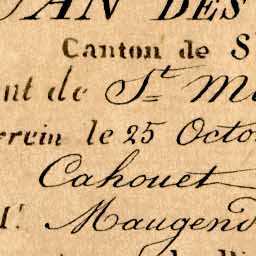 AN DES
Canton de S
nt de St M
rrein le 25 Octo
Cahouet
Mr. Maugend